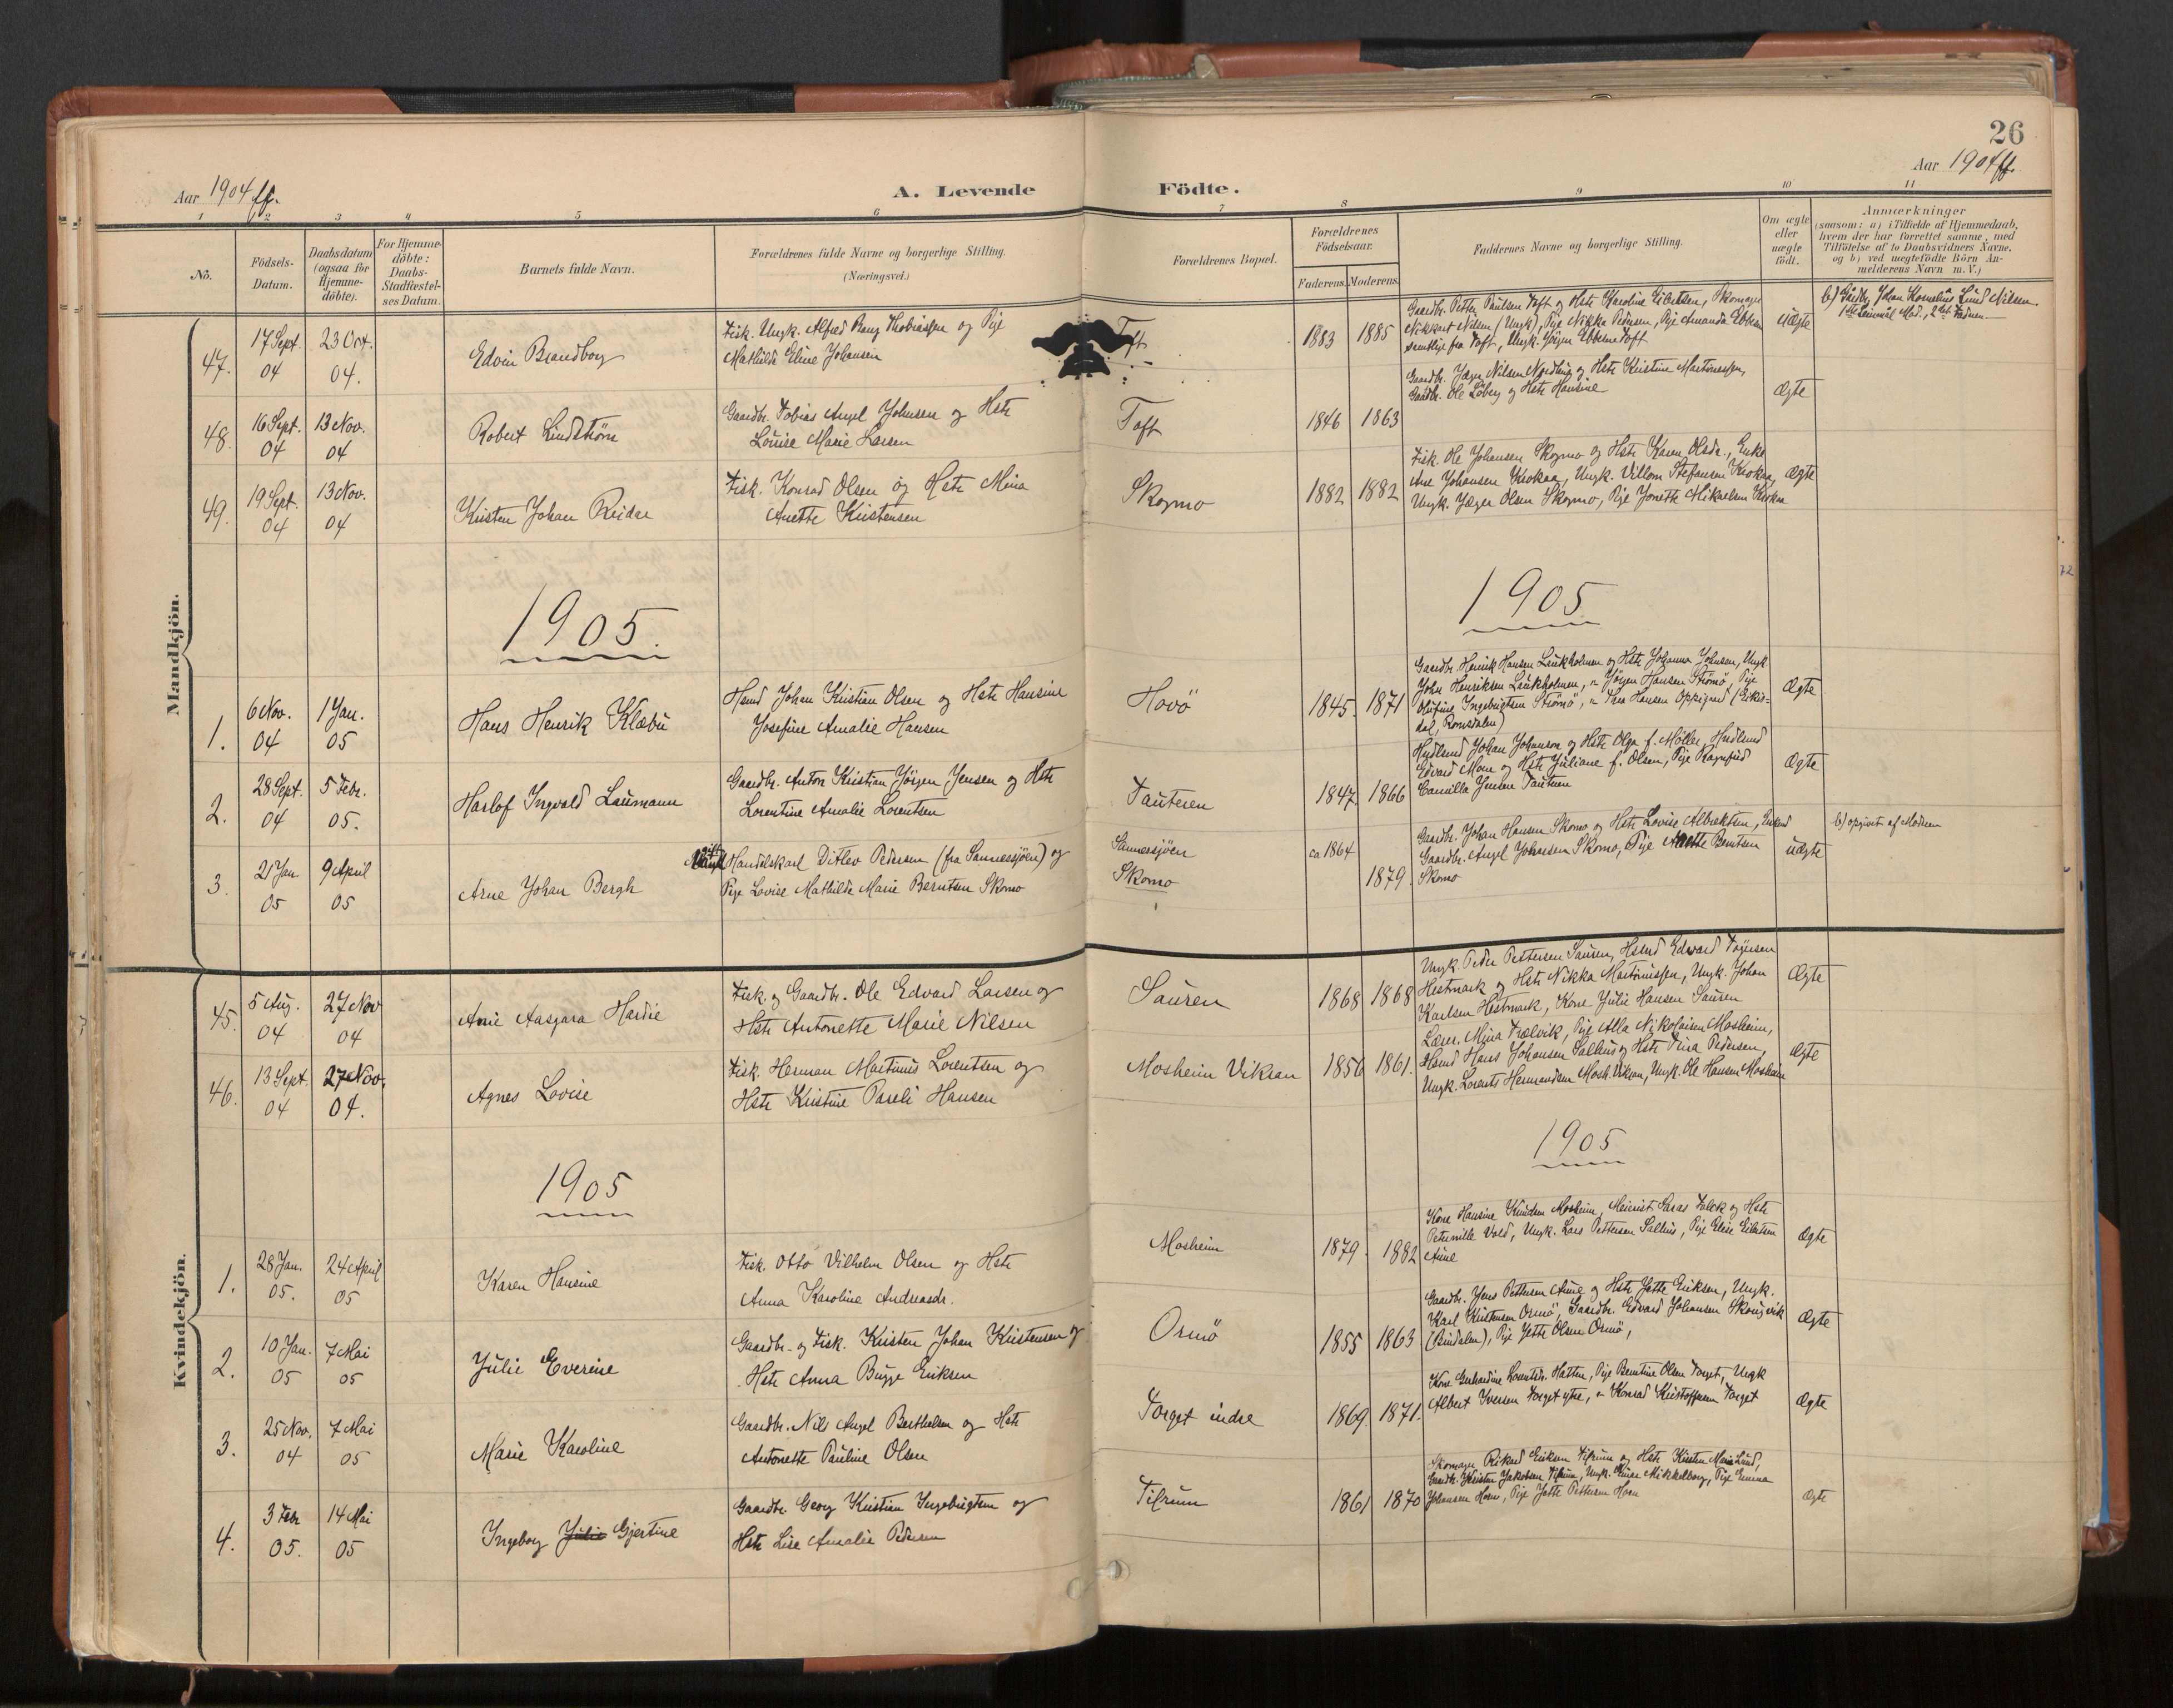 26
Aar 1904 ff.
A. Levende
Födte.
Aar 1904 ff.
1 2 3 4 5 6 7 8 9 10 11
No.
Födsels-
Datum.
Daabsdatum
(ogsaa for
Hjemme-
döbte).
For Hjemme-
döbte:
Daabs-
Stadfæstel-
ses Datum.
Barnets fulde Navn.
Forældrenes fulde Navne og borgerlige Stilling.
(Næringsvei.)
Forældrenes Bopæl.
Forældrenes
Födselsaar.
Faderens. Moderens.
Faddernes Navne og borgerlige Stilling.
Om ægte
eller
uægte
født.
Anmærkninger
(saasom: a) i Tilfælde af Hjemmedaab,
hvem der har forrettet samme, med
Tilføielse af to Daabsvidners Navne,
og b) ved uægtefödte Börn An-
melderens Navn m. V.)
Mandkjön.
47.
17 Sept.
04
23 Oct.
04.
Edvin Brandborg
Fisk. Ungk. Alfred Bang Thobiassen og Pige
Mathilde Eline Johansen
Toft
1883 1885
Gaardbr. Petter Paulsen Toft og Hstr Karoline Eibertsen, Skomager
Nikkart Nilsen (Ungk), Pige Nikka Pedersen, Pige Amanda Ebbesen
samtlige fra Toft, Ungk. Jörgen Ebbesen Toft
uægte
b) Gårdbr. Johan Kornelius Lund Nilsen.
48.
16 Sept.
04
13 Nov.
04
Robert Lindström
Gaardbr. Tobias Angel Johnsen og Hstr
Louise Marie Larsen
Toft
1846 1863
Gaardbr. Jæger Nilsen Nordhus og Hstr Kristine Martinussen,
Gaardbr. Ole Löberg og Hstr Hansine
Ægte
49.
19 Sept.
04
13 Nov.
04
Kristen Johan Reidar
Fisk. Konrad Olsen og Hstr Mina
Anette Kristensen
Skogmo
1882 1882
Fisk. Ole Johansen Skogmo og Hstr Karen Olsdr., Enke
Ane Johansen Krokaa, Ungk. Villom Stefansen Krokaa,
Ungk. Jæger Olsen Skogmo, Pige Jonette Mikaelsen Krokaa
Ægte
1905.
1905
1.
6 Nov.
04
1 Jan.
05
Hans Henrik Klæbu
Hsmd Johan Kristian Olsen og Hstr Hansine
Josefine Amalie Hansen
Hovö
1845. 1871
Gaardbr. Henrik Hansen Laukholmen og Hstr Johanna Johnsen, Ungk
John Henriksen Laukholmen, " Jörgen Hansen Strömö, Pige
Olufine Ingebrigtsen Strömö, " Hansen Oppigard (Eikis-
dal, Romsdalen)
Ægte
2.
28 Sept.
04
5 Febr.
05.
Harlof Ingvald Laumann
Gaardbr. Anton Kristian Jörgen Jensen og Hstr
Lorentine Amalie Lorentsen
Tauteren
1847. 1866
Hndlsmd Johan Johanson og Hstr Olga f. Møller, Hndlsmd
Edvard Moen og Hstr Juliane f. Olsen, Pige Ragnfrid
Camilla Jensen Tauteren
Ægte
3.
21 Jan
05
9 April
05
Arne Johan Bergh
Handelskarl Ditlev Pedersen (fra Sannessjöen) og
Pige Lovise Mathilde Marie Berntsen Skomo
Sannessjöen
Skomo
ca 1864
1879.
Gaardbr. Johan Hansen Skomo og Hstr Lovise Albrektsen, Enkemd
Gaardbr. Angel Johansen Skomo, Pige Anette Berntsen
Skomo
uægte
b) opgivet af Moderen
Kvindekjön.
45.
5 Aug.
04
27 Nov
04
Anie Aasgara Hardie
Fisk. og Gaardbr. Ole Edvard Larsen og
Hstr Antonette Marie Nilsen
Sauren
1868 1868
Ungk. Peder Pettersen Sauren, Hsmd Edvard Torgersen
Hestmark og Hstr Nikka Martinussen, Ungk. Johan
Karlsen Hestmark, Kone Julie Hansen Sauren
Ægte
46.
13 Sept.
04
27 Nov.
04.
Agnes Lovise
Fisk. Herman Martinus Lorentsen og
Hstr Kristine Pareli Hansen
Mosheim Vikran
1856 1861.
Lærer. Mina Trælvik, Pige Alla Nikolaisen Mosheim,
Hsmd Hans Johansen Salhus og Hstr Tina Pedersen,
Ungk. Lorents Hermandsen Mosh. Vikran, Ungk. Ole Hansen Mosheim
Ægte
1905
1905
1.
28 Jan.
05.
24 April
05
Karen Hansine
Fisk. Otto Vilhelm Olsen og Hstr
Anna Karoline Andreasdr.
Mosheim
1879. 1882
Kone Hansine Knudsen Mosheim, Falck og Hstr
Peternille Vold, Ungk. Lars Pettersen Salhus, Pige Elise Eilertsen
Aune
Ægte
2.
10 Jan.
05
7 Mai
05
Julie Everine
Gaardbr. og Fisk. Kristen Johan Kristensen og
Hstr Anna Bugge Eriksen
Ormö
1855 1863
Gaardbr. Jens Pettersen Aune og Hstr Jette Eriksen, Ungk.
Karl Kristensen Ormö, Gaardbr. Edvard Johansen Skougvik
(Bindalen), Pige Jette Olsen Ormö,
Ægte
3.
25 Nov.
04
7 Mai
05
Marie Karoline
Gaardbr. Nils Angel Berthelsen og Hstr
Antonette Pauline Olsen
Torget indre
1869. 1871.
Kone Gerhardine Lorentsdr. Hatten, Pige Berntine Olsen Torget, Ungk
Albert Iversen Torget ytre, " Konrad Kristoffersen Torget
Ægte
4.
3 Febr
05.
14 Mai
05
Ingeborg Julie Gjertine
Gaardbr. Georg Kristian Ingebrigtsen og
Hstr Lise Amalie Pedersen
Tilrum
1861 1870
Skomager Rikard Eriksen Tilrum og Hstr Kirsten Marie Lund,
Gaardbr. Kristen Jakobsen Tilrum, Ungk. Einar Mikkelborg, Pige Emma
Johansen Horn, Pige Jette Pettersen Horn
Ægte